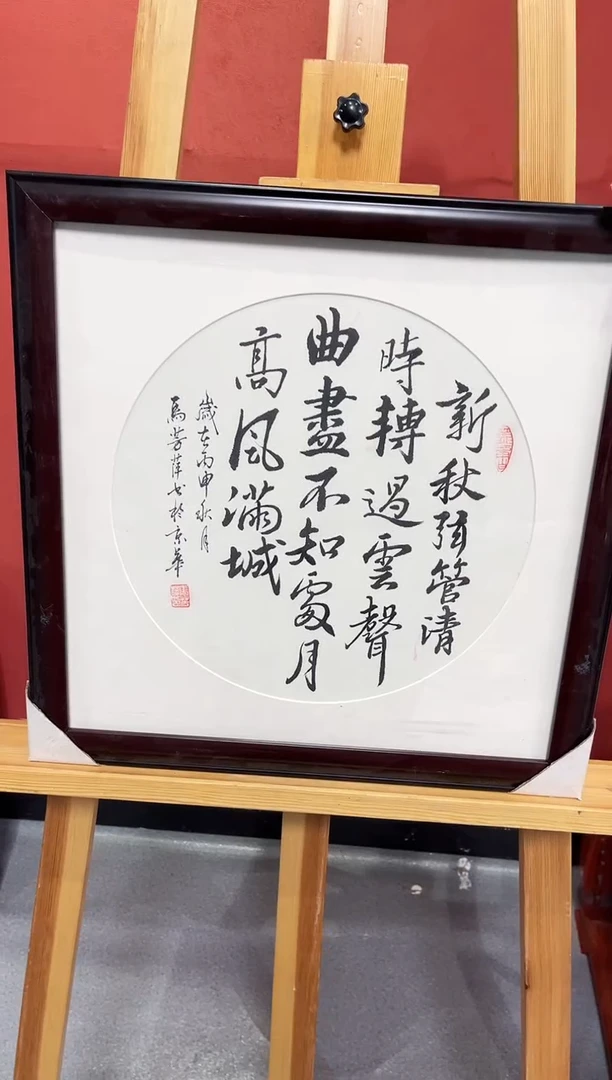 新秋弦管清
時轉遏雲聲
曲盡不知處月
高風滿城
歲在丙申秋月
馬芳萍書於京華